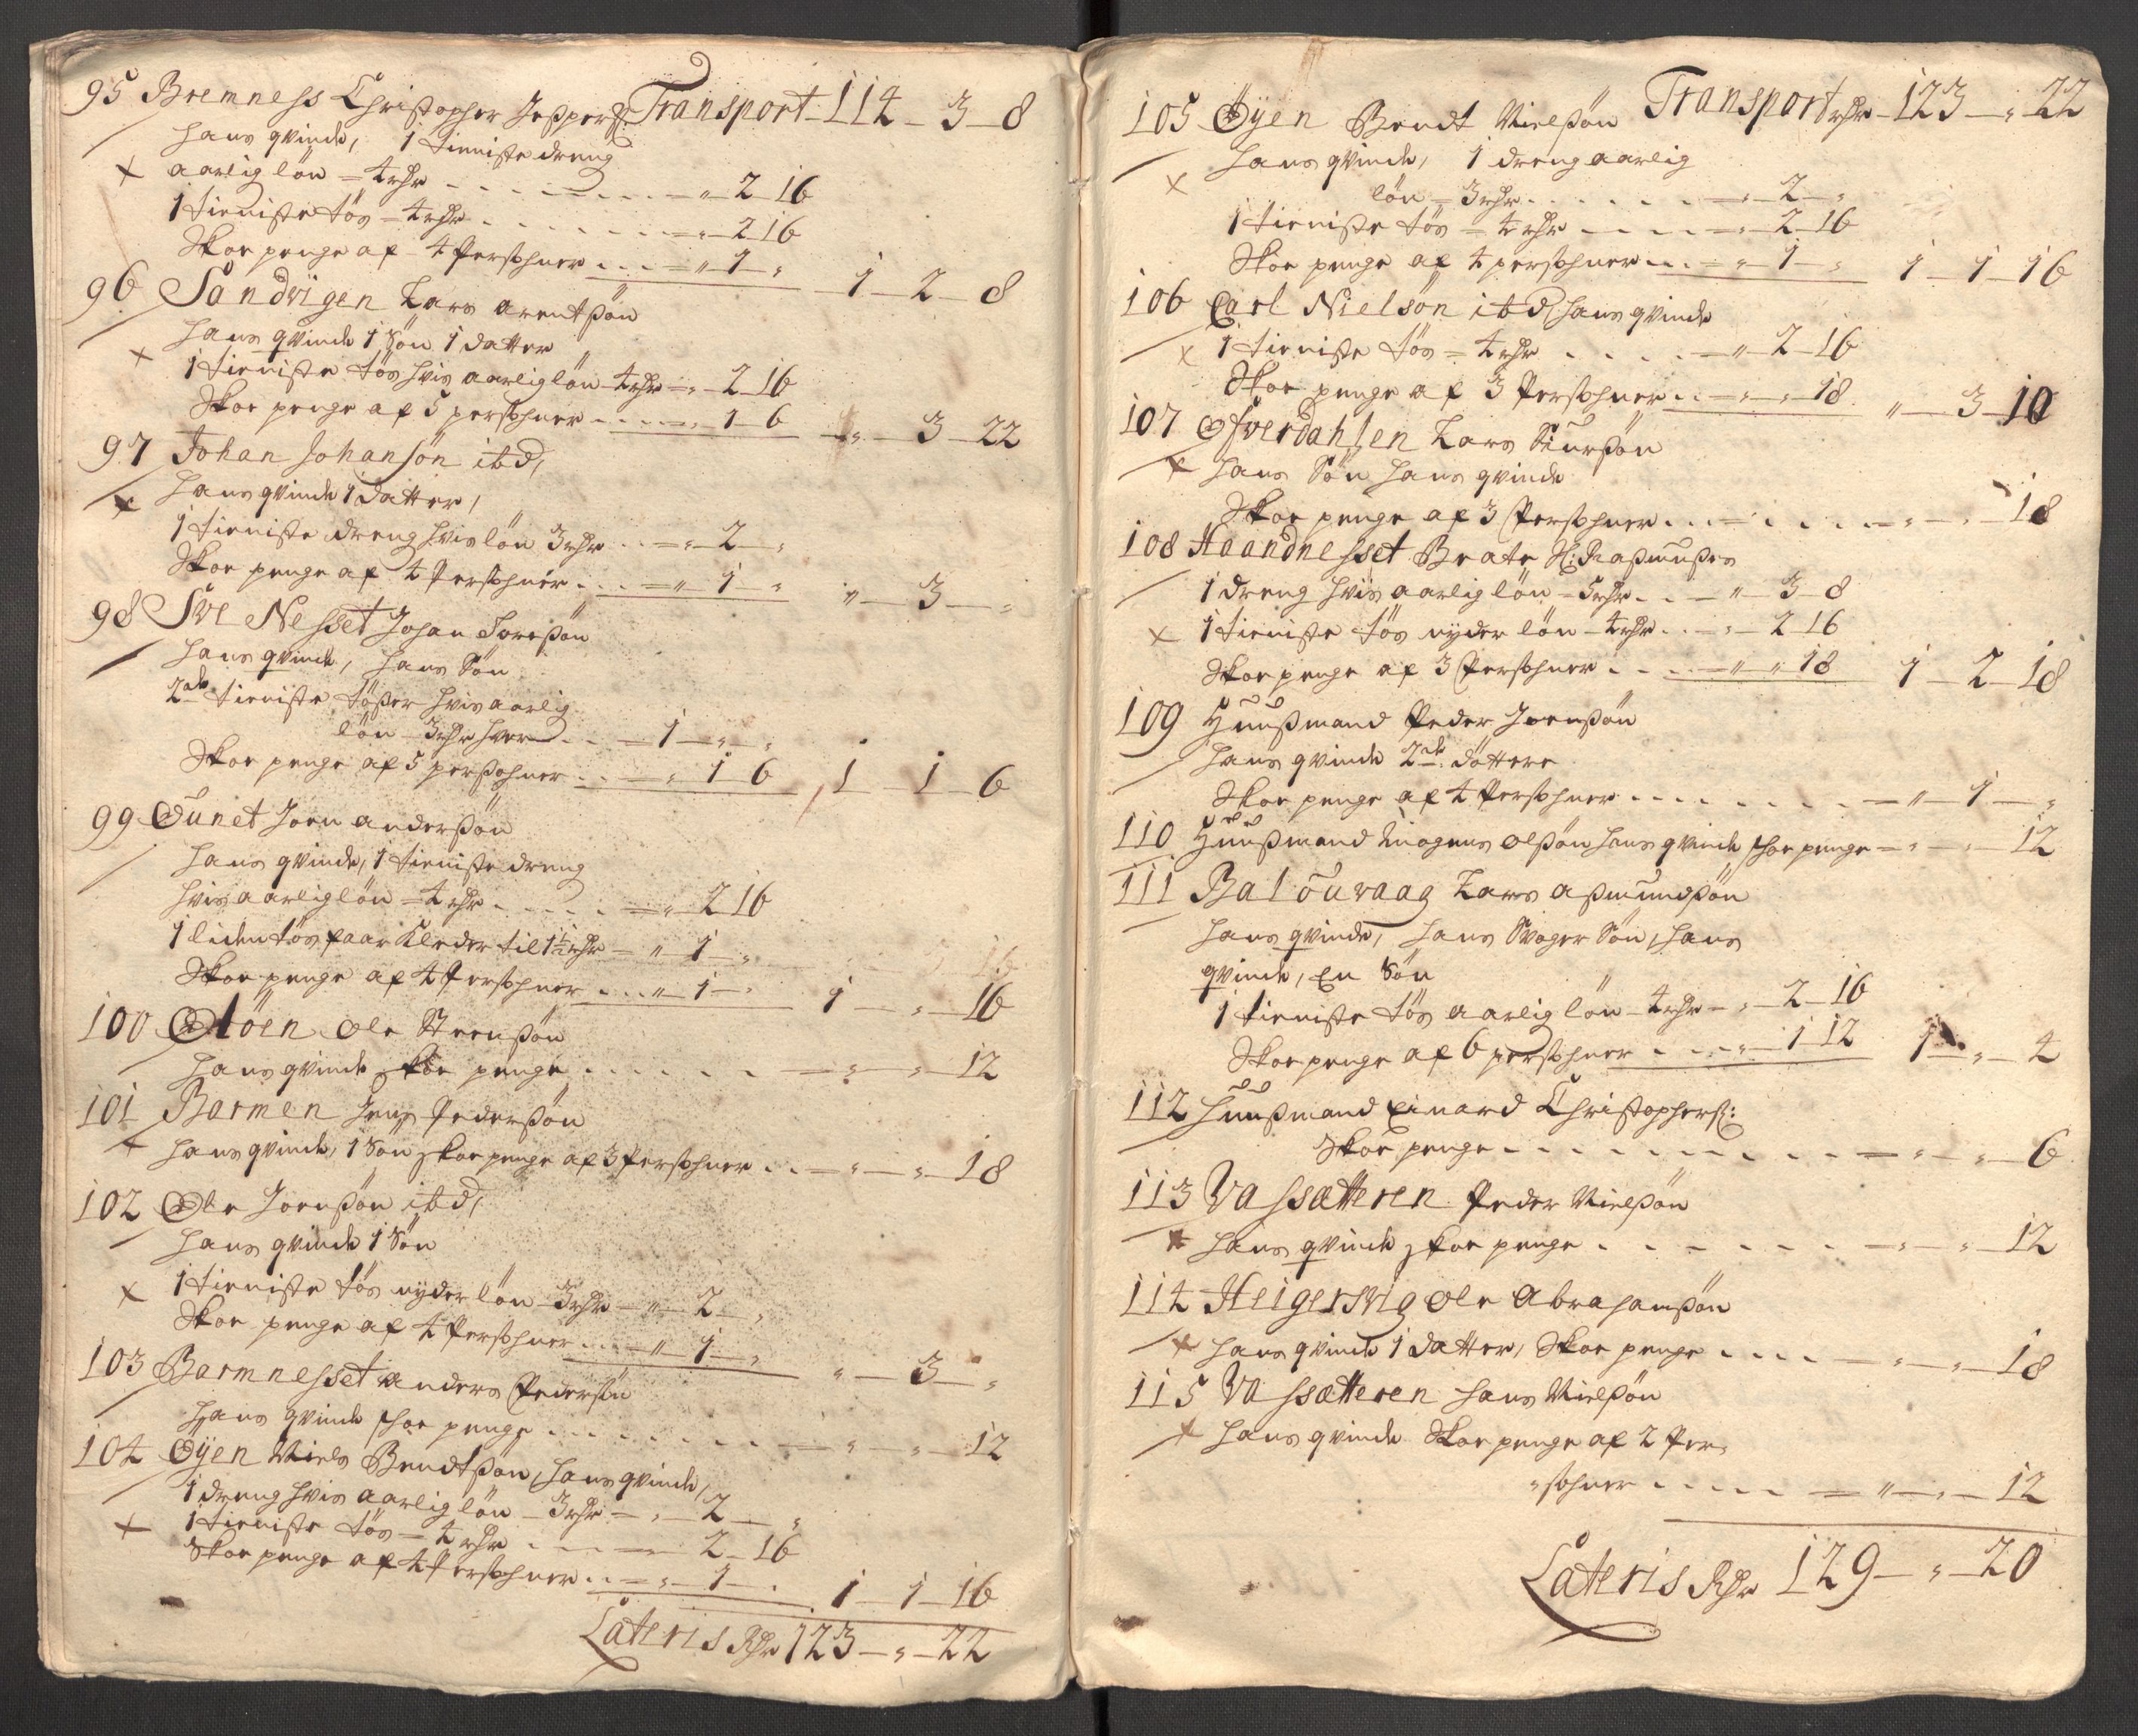 95 Bremness Christopher Jesppers: Transport 114 – 3 – 8
hans qvinde, 1 tieniste dreng
aarlig lön = 4 rdr – – – – „ 2 16
1 tieniste tös = 4 rdr – – – – „ 2 16
Skoe penge af 4 Persohner – – „ 1 „ 1 – 2 – 8
96 Sandvigen Lars arentsön
hans qvinde 1 Sön 1 datter
1 tieniste tös hvis aarlig lön 4 rdr – „ 2 16
Skoe penge af 5 persohner – – „ 1 – 6 „ 3 – 22
97 Johan Johansön ibd,
hans qvinde 1 datter,
1 tieniste dreng hvis lön 3 rdr – – „ 2 – „
Skoe penge af 4 Persohner – – „ 1 – „ „ – 3 – „
98 Nesset Johan
hans qvinde, hans Sön
2de tieniste tösser hvis aarlig
lön 3 rdr hver – – 1 – „ – „
Skoe penge af 5 persohner – – „ 1 6 1 – 1 – 6
99 Ounet Joen andersön
hans qvinde, 1 tieniste dreng
hvis aarlig lön = 4 rdr – – – „ 2 16
1 liden tös faar Kleder til 1½ rdr – „ 1 – „
Skoe penge af 4 Persohner – – „ 1 – „ 1 – „ – 16
100 Ole Steensön
hans qvinde skoe penge – – – – „ – „ – 12
101 Barmen Jens Pedersön
hans qvinde, 1 Sön skoe penge af 3 Persohner – – „ – „ – 18
102 Ole Joensön ibd,
hans qvinde 1 Sön
1 tieniste tös nyder lön 3 rdr – „ 2 – „
Skoe penge af 4 Persohner – – „ 1 – „ „ – 3 – „
103 Barmnesset anders Pedersön
hans qvinde skoe penge – – – – „ – „ – 12
104 Öyen Niels Bendtsön, hans qvinde,
1 dreng hvis aarlig lön 3 rdr – „ 2 – „
1 tieniste tös = 4 rdr – – – 2 – 16
Skoe penge af 4 Persohner – – „ 1 – „ 1 – 1 – 16
Lateris Rdr 123 – „ – 22
105 Öyen Bendt Nielsön Transport rdr 123 – „ 22
hans qvinde, 1 dreng aarlig
lön = 3 rdr – – – – „ 2 – „
1 tieniste tös = 4 rdr – – – „ 2 – 16
Skoe penge af 4 persohner – – „ 1 – „ 1 – 1 – 16
106 Carl Nielsön ibd, hans qvinde
1 tieniste tös = 4 rdr – – – „ 2 – 16
Skoe penge af 3 Persohner – – „ – „ 18 „ – 3 – 10
107 Öfverdahlen Lars Siursön
hans Sön hans qvinde
Skoe penge af 3 Persohner – – – – „ – „ 18
108 Haandnesset Beate H: Rasmuses
1 dreng hvis aarlig lön 5 rdr – – „ 3 – 8
1 tieniste tös nyder lön 4 rdr – – „ 2 16
Skoe penge af 3 Persohner – – „ „ 18 1 – 2 – 18
109 Huusmand Peder Joensön
hans qvinde 2de döttere
Skoe penge af 4 Persohner – – – – „ – 1 – „
110 Huusmand Mogens olsön hans qvinde skoe penge – „ – „ 12
111 Balsuvaag Lars asmundsön
hans qvinde, hans Svoger Sön, hans
qvinde, En Sön
1 tieniste tös aarlig lön 4 rdr – „ 2 – 16
Skoe penge af 6 persohner – – „ 1 12 1 – „ – 4
112 Huusmand Einard Christophers:
Skoe penge – – – – – „ – „ – 6
113 Vassætteren Peder Nielsön
hans qvinde skoe penge – – – – „ – „ 12
114 Heigersvig ole Abrahamsön
hans qvinde 1 datter, Skoe penge – – – „ – „ – 18
115 Vassætteren hans Nielsön
hans qvinde Skoe penge af 2 Per-
sohner – – – – „ – „ – 12
Lateris Rdr 129 – „ – 20